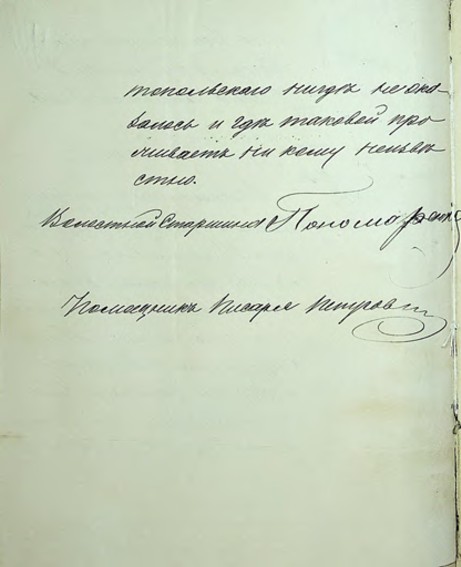 топольскаго нигдѣ не ока
залось и гдѣ таковой про
живаетъ ни кому неизвѣ
стно.
Волостной Старшина Пономаренко
Помощникъ Писаря Петров